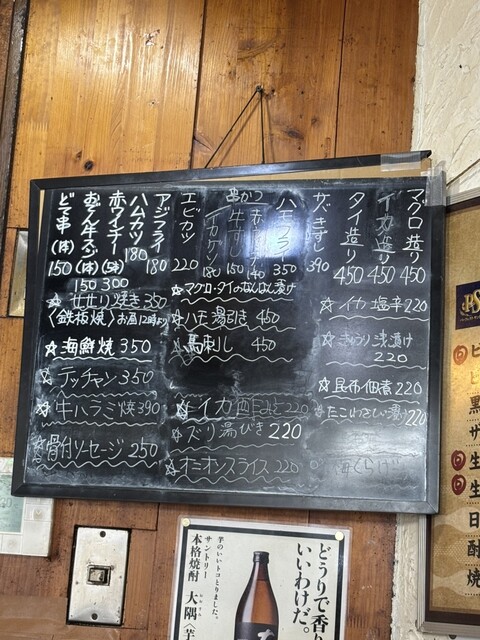 マグロ造り 450
イカ造り 450
タイ造り 450
サバきずし 390
ハモフライ 350
串かつ
140
牛すじ 150
イカゲソ 180
エビカツ 220
アジフライ 180
ハムカツ 180
赤ウインナー (5本) 300
おでん牛スジ (1本) 150
どて串 (1本) 150
☆せせり焼き 350
〈鉄板焼〉お昼12時より
☆海鮮焼 350
テッチャン 350
☆牛ハラミ焼 390
☆骨付ソーセージ 250
☆マグロ・タイのなんばん漬け
☆ハモ湯引き 450
☆馬刺し 450
☆イカ 220
☆ズリ湯びき 220
☆オニオンスライス 220
☆イカ塩辛 220
☆きゅうり浅漬け
220
☆昆布佃煮 220
☆たこわさび 220
どうりで香
いいわけだ。
芋のいいトコとりました。
サントリー
本格焼酎 大隅〈芋
おおすみ
ビ
黒
ザ
生
生
日
酎
焼